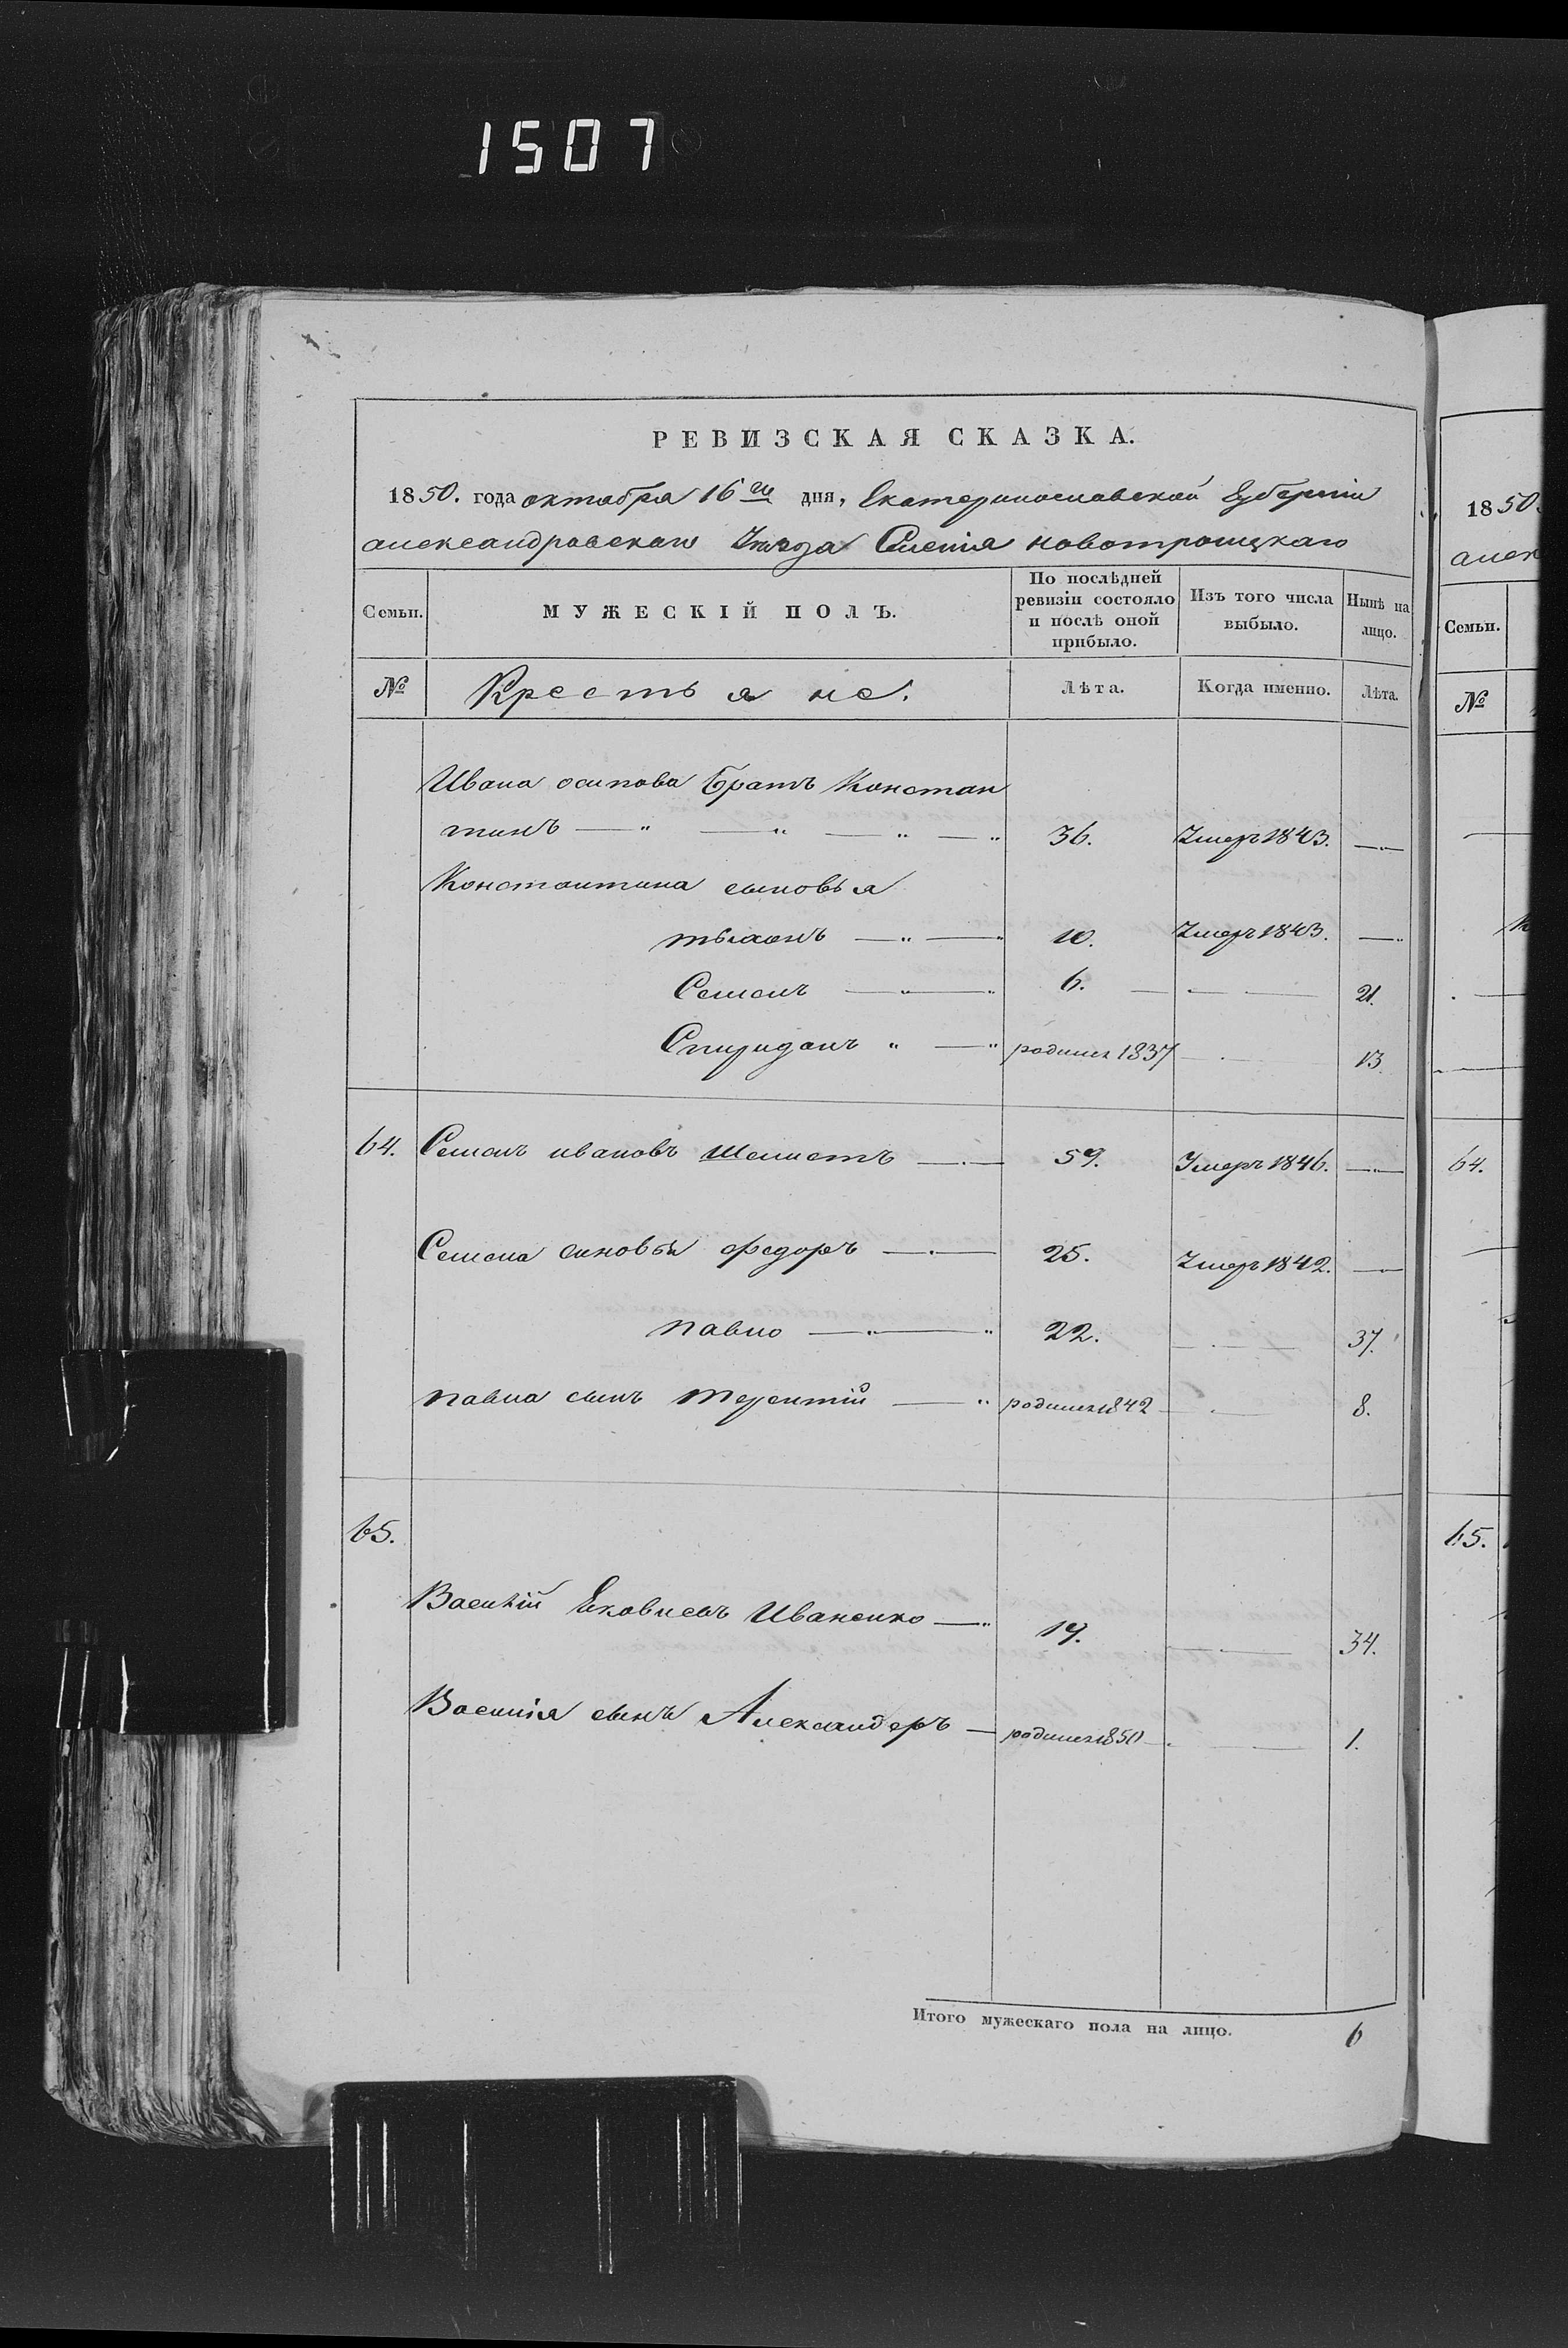 1507
РЕВИЗСКАЯ СКАЗКА.
1850. года октабря 16го дня, Екатеринославской Губерніи
александровскаго Уѣзда Селенія новотроицкаго
Семьи. МУЖЕСКІЙ ПОЛЪ. По послѣдней ревизіи состояло и послѣ оной прибыло. Изъ того числа выбыло. Нынѣ на лицо.
№ Крестьяне. Лѣта. Когда именно. Лѣта.
Ивана осипова Братъ Констан
тинъ — „ — „ — „ — „ 36. Умеръ 1843. —
Константина сыновья
тыхонъ — „ — „ 10. Умеръ 1843. — „
Семенъ — „ — „ 6. — — 21.
Спиридонъ „ — „ родился 1837 — 13.
64. Семенъ ивановъ — 59. Умеръ 1846. — „ —
Семена сыновья федоръ — 25. Умеръ 1842. —
павло — „ — „ 22. — 37.
павла сынъ терентий — „ родился 1842 — 8.
65.
Василій Яковлевъ Иваненко — „ 19. — 34.
Василія сынъ Александеръ — родился 1850 — 1.
Итого мужескаго пола на лицо. 6
1850.
алек
Семьи.
№
64.
65.